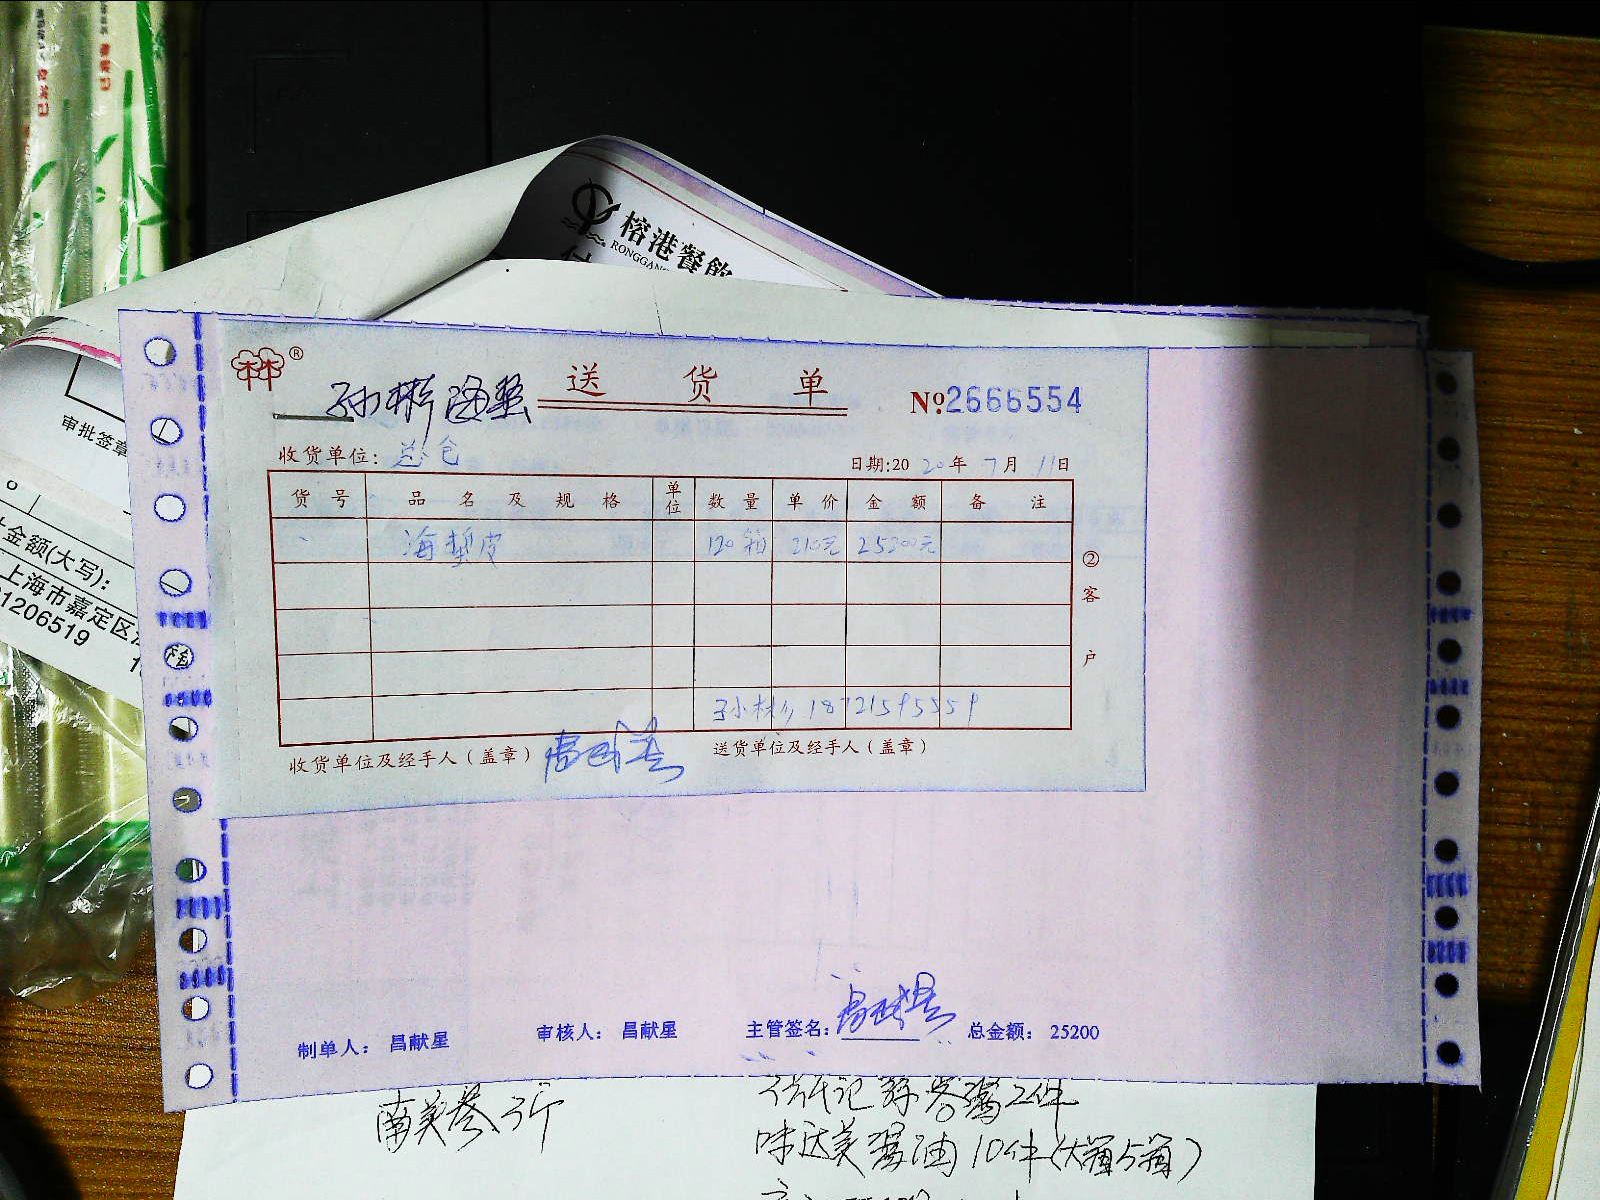 榕港餐飲
RONGGANG
审批签章
金额(大写):
上海市嘉定区
1206519
孙彬海蜇 送 货 单 №2666554
收货单位: 总仓 日期:2020年7月11日
货 号 品 名 及 规 格 单位 数 量 单 价 金 额 备 注
海蜇皮 120箱 210元 25200元
②客户
孙彬 18721595559
收货单位及经手人(盖章) 昌献星 送货单位及经手人(盖章)
制单人: 昌献星 审核人: 昌献星 主管签名: 昌献星 总金额: 25200
南美参 3斤
蒜蓉酱2件
味达美酱油10件(大箱5箱)